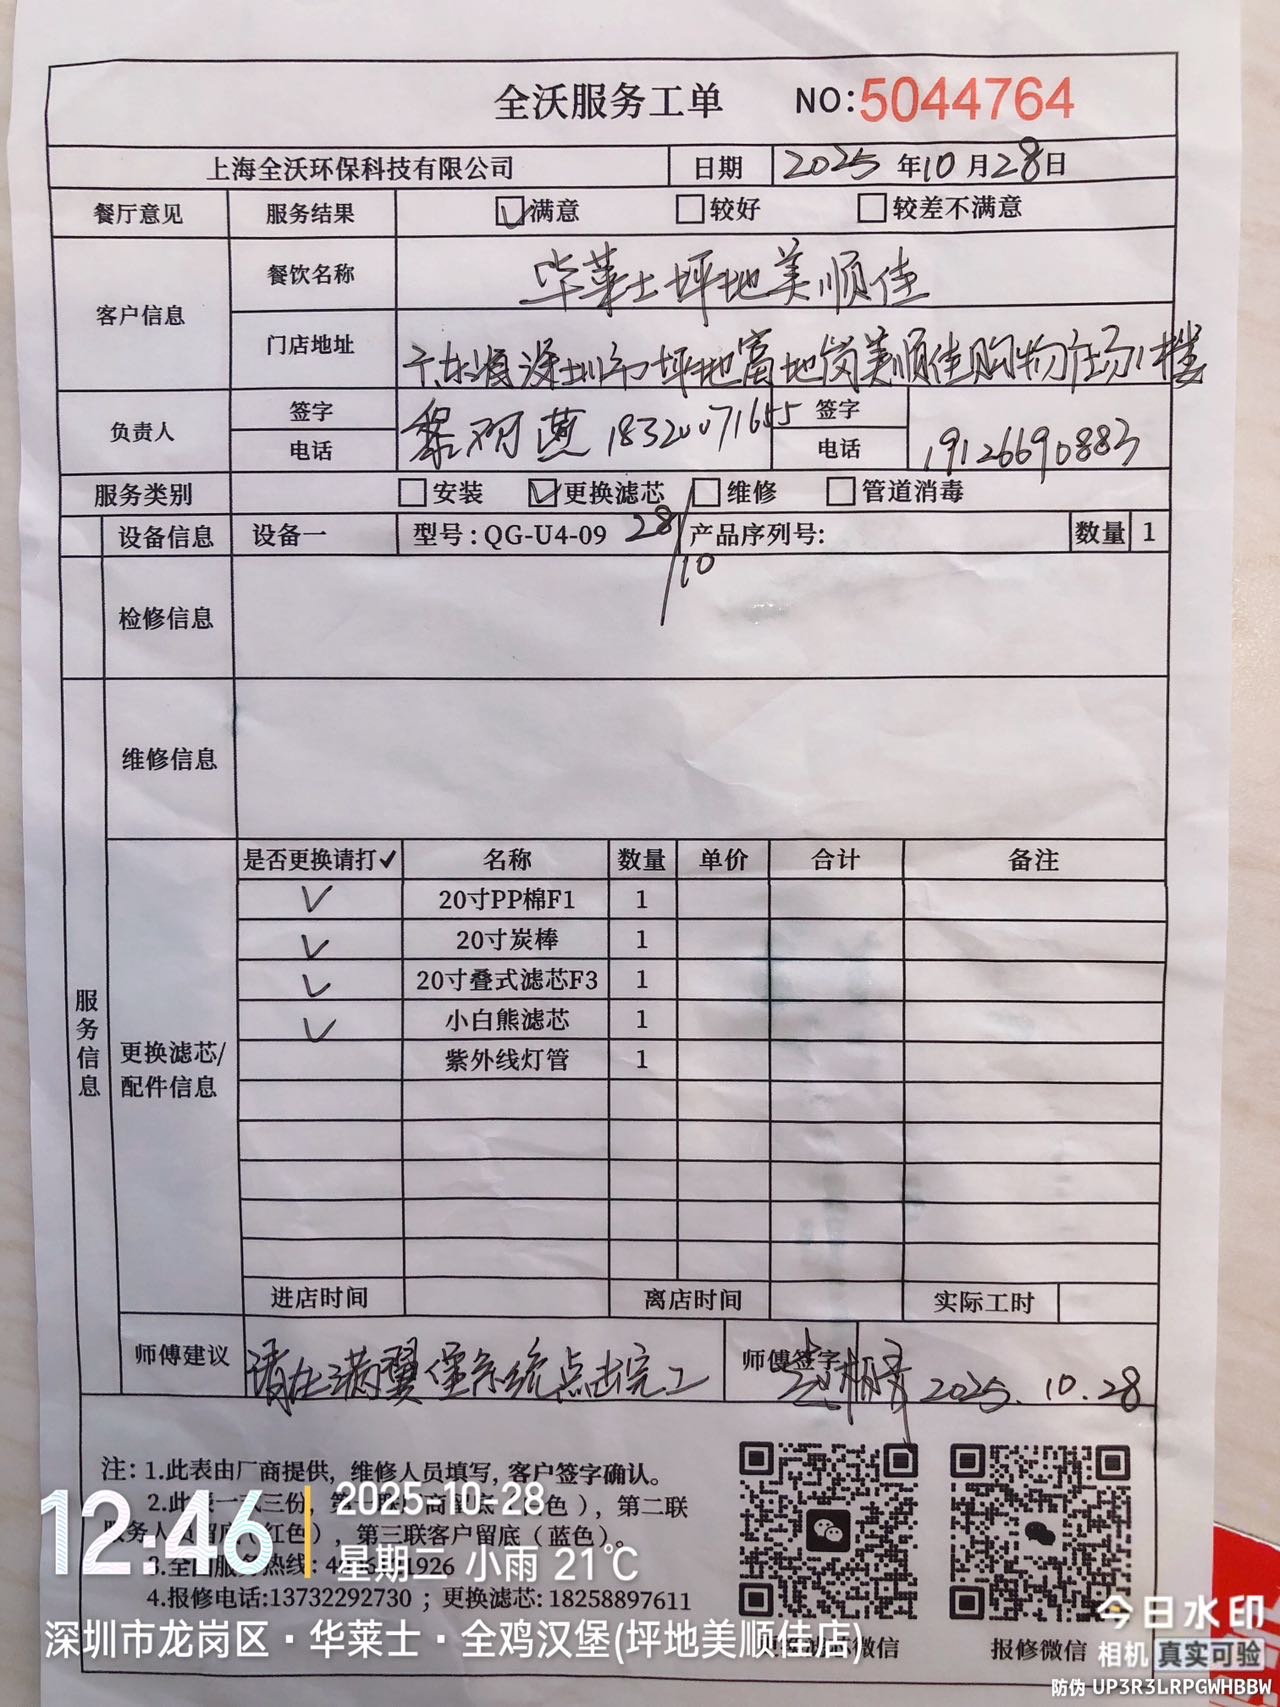 全沃服务工单 NO:5044764
上海全沃环保科技有限公司 日期 2025年10月28日
餐厅意见 服务结果 ☑满意 □较好 □较差不满意
客户信息 餐饮名称 华莱士坪地美顺佳
门店地址 广东省深圳市坪地富地岗美顺佳购物广场1楼
负责人 签字 签字
电话 18320071655 电话 19126690883
服务类别 □安装 ☑更换滤芯 □维修 □管道消毒
设备信息 设备一 型号:QG-U4-09 28/10 产品序列号: 数量 1
检修信息
维修信息
服务信息
更换滤芯/配件信息
是否更换请打✓ 名称 数量 单价 合计 备注
✓ 20寸PP棉F1 1
✓ 20寸炭棒 1
✓ 20寸叠式滤芯F3 1
✓ 小白熊滤芯 1
紫外线灯管 1
进店时间 离店时间 实际工时
师傅建议 请在满翼堡系统点击完工 师傅签字 2025.10.28
注:1.此表由厂商提供,维修人员填写,客户签字确认。
2.此表一式三份, 第二联
第三联客户留底(蓝色)。
3.全国服务热线:
4.报修电话:13732292730;更换滤芯:18258897611
报修微信
12:46 2025-10-28
星期二 小雨 21℃
深圳市龙岗区·华莱士·全鸡汉堡(坪地美顺佳店)
今日水印
相机 真实可验
防伪 UP3R3LRPGWHBBW